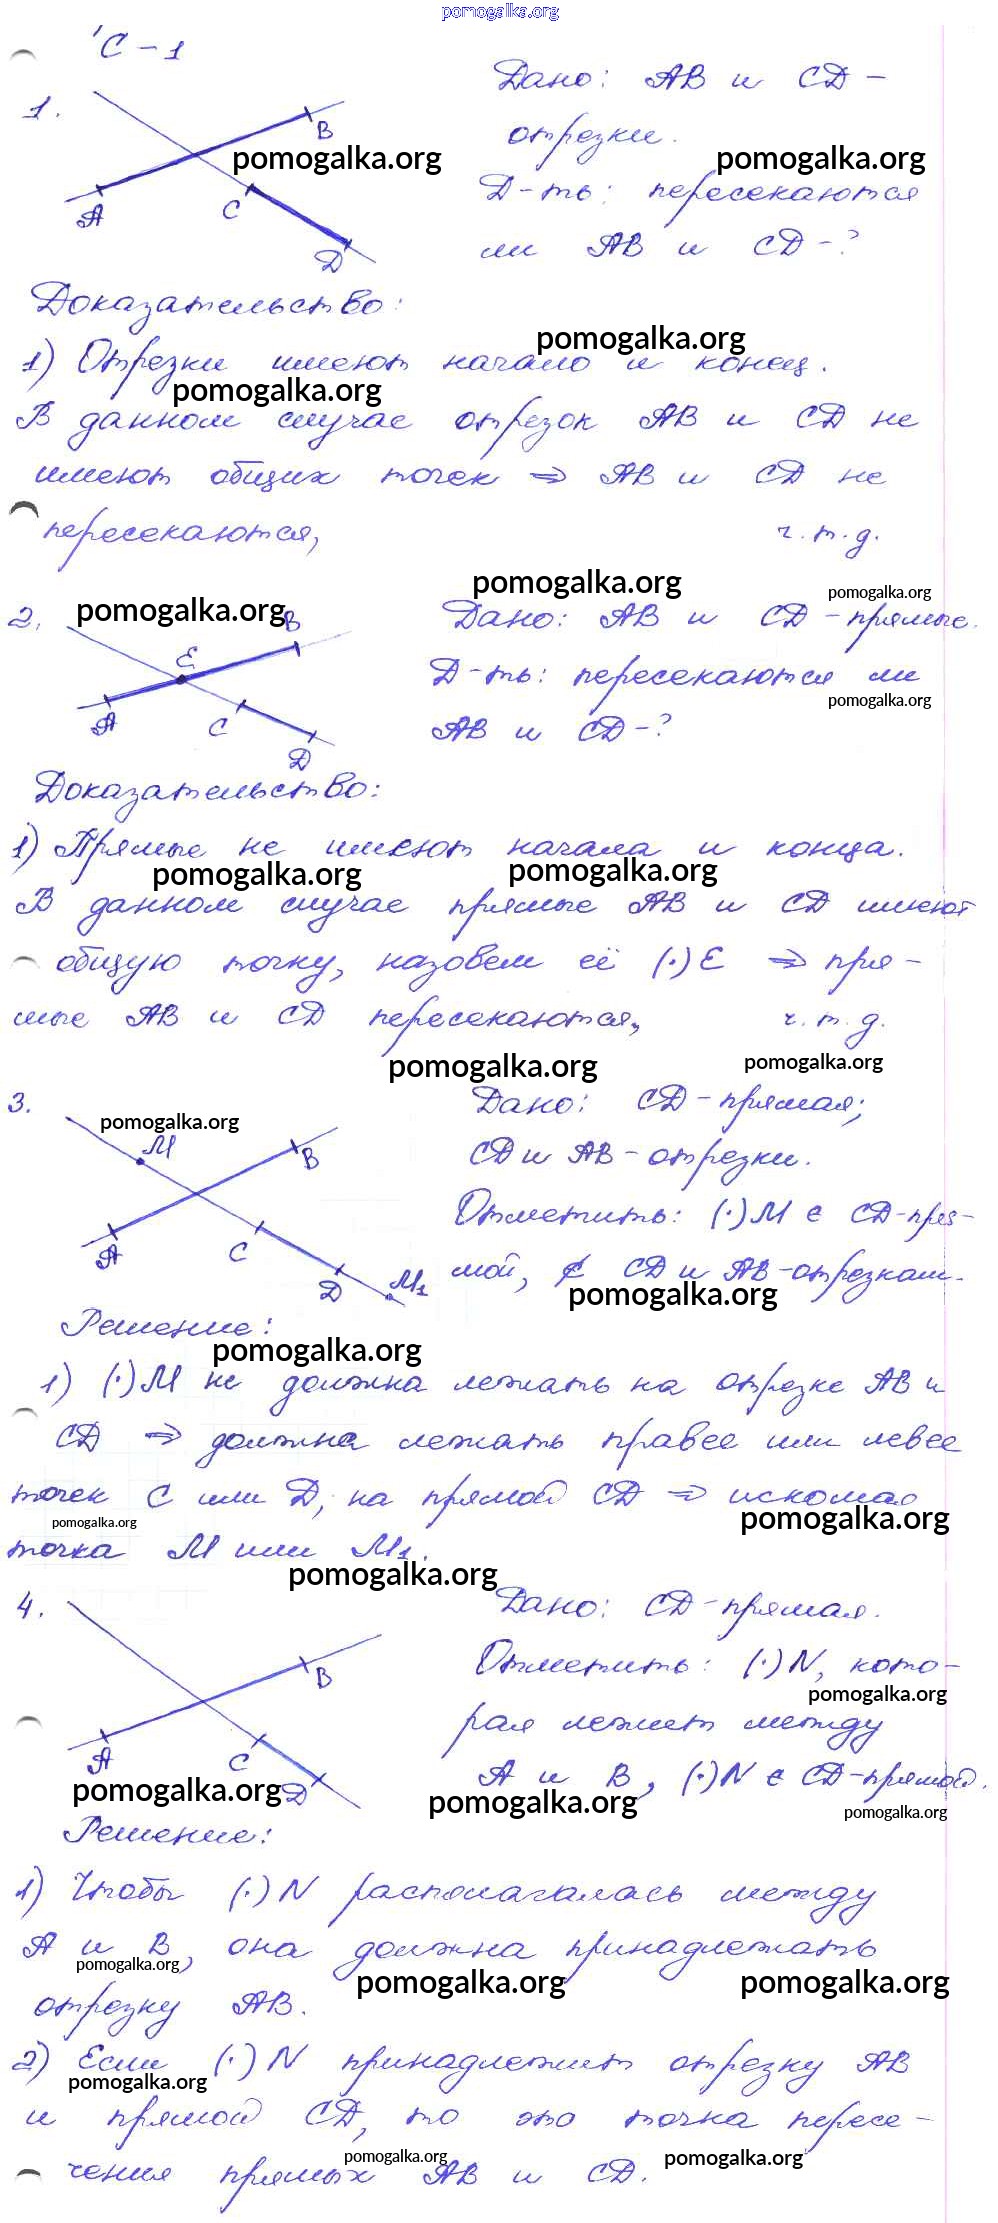 pomogalka.org
С-1
1.
Дано: AB и CD -
отрезки.
B
pomogalka.org
pomogalka.org
A
C
D
Д-ть: пересекаются
ли AB и CD-?
Доказательство:
pomogalka.org
1) Отрезки имеют начало и конец.
pomogalka.org
В данном случае отрезок AB и CD не
имеют общих точек ⇒ AB и CD не
пересекаются,
ч.т.д.
pomogalka.org
pomogalka.org
pomogalka.org
2.
B
E
A
C
D
Дано: AB и CD - прямые.
Д-ть: пересекаются ли
pomogalka.org
AB и CD-?
Доказательство:
1) Прямые не имеют начала и конца.
pomogalka.org
pomogalka.org
В данном случае прямые AB и CD имеют
общую точку, назовем её (·)E ⇒ пря-
мые AB и CD пересекаются,
ч.т.д.
pomogalka.org
pomogalka.org
3.
pomogalka.org
M
B
A
C
D
M₁
Дано: CD - прямая;
CD и AB - отрезки.
Отметить: (·)M ∈ CD-пря-
мой, ∉ CD и AB-отрезкам.
pomogalka.org
Решение:
pomogalka.org
1) (·)M не должна лежать на отрезке AB и
CD ⇒ должна лежать правее или левее
точек C или D, на прямой CD ⇒ искомая
pomogalka.org
pomogalka.org
точка M или M₁.
pomogalka.org
4.
B
A
C
D
Дано: CD - прямая.
Отметить: (·)N, кото-
pomogalka.org
рая лежит между
A и B, (·)N ∈ CD-прямой.
pomogalka.org
pomogalka.org
pomogalka.org
Решение:
1) Чтобы (·)N располагалась между
A и B, она должна принадлежать
pomogalka.org
pomogalka.org
pomogalka.org
отрезку AB.
2) Если (·)N принадлежит отрезку AB
pomogalka.org
и прямой CD, то это точка пересе-
pomogalka.org
pomogalka.org
чения прямых AB и CD.